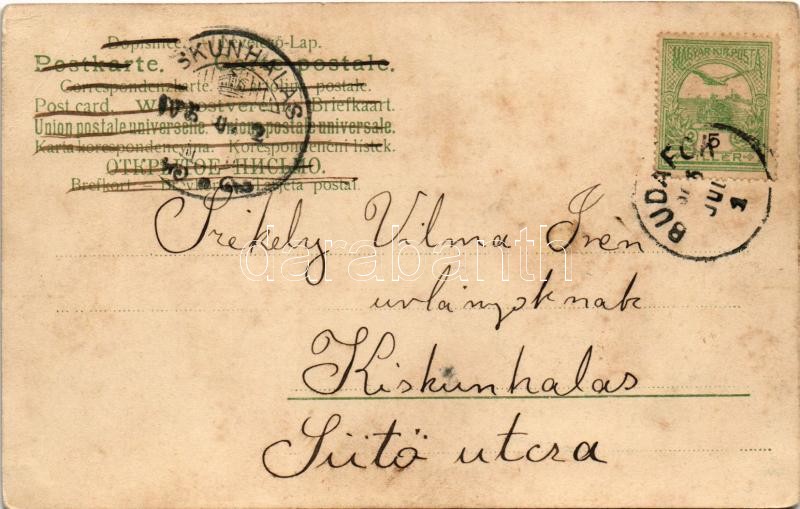 Dopisnice. Levelező-Lap.
Postkarte. postale.
Correspondenzkarte. postale.
Post card. Weltpostverein. Briefkaart.
Union postale universelle. Unione postale universale.
Karta korespondencyjna. Korespondenční lístek.
ОТКРЫТОЕ ПИСЬМО.
Brefkort — Tarjeta postal.
KISKUNHALAS
MAGYAR KIR. POSTA
5
FILLÉR
BUDAFOK
JUL
Székely Vilma Iren
urlányoknak
Kiskunhalas
Sütő utcza
darabanth